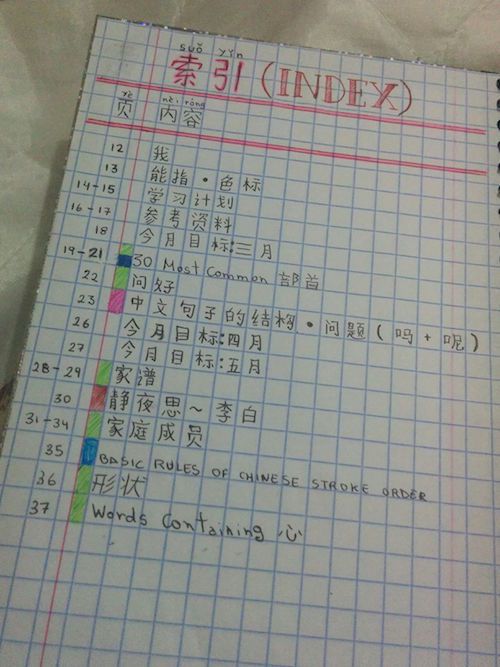 suǒ yǐn
索引 (INDEX)
yè nèi róng
页 内容
12 我
13 能指·色标
14-15 学习计划
16-17 参考资料
18 今月目标:三月
19-21 50 Most Common 部首
22 问好
23 中文句子的结构·问题(吗+呢)
26 今月目标:四月
27 今月目标:五月
28-29 家谱
30 静夜思~李白
31-34 家庭成员
35 BASIC RULES OF CHINESE STROKE ORDER
36 形状
37 Words Containing 心